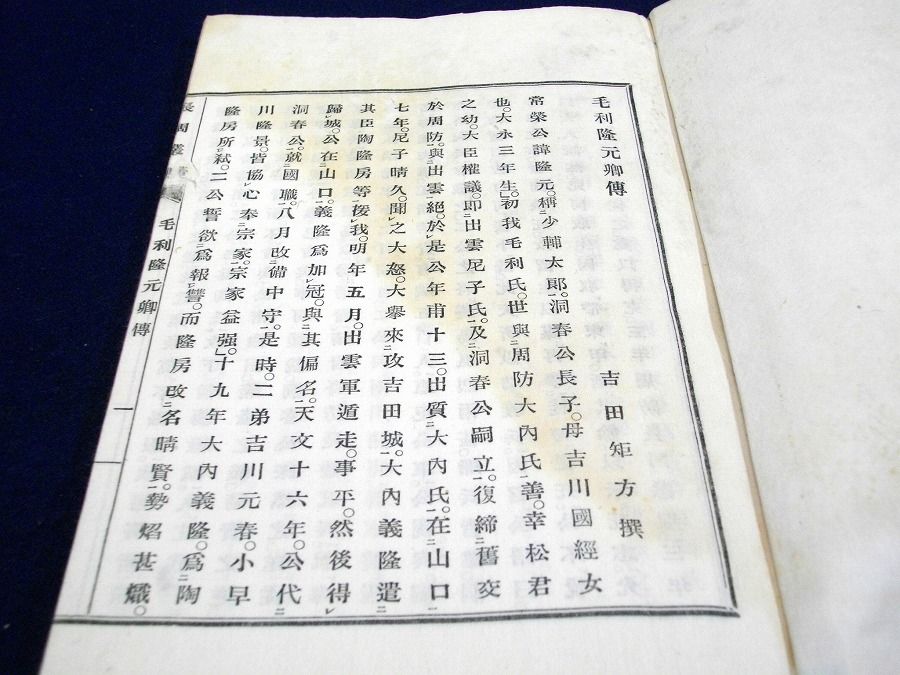 毛利隆元卿傳
吉田矩方撰
常榮公諱隆元。稱少輔太郎。洞春公長子。母吉川國經女
也。大永三年生。初我毛利氏。世與周防大內氏善。幸松君
之幼。大臣權議。卽出雲尼子氏。及洞春公嗣立。復締舊交
於周防。與出雲絕。於是公年甫十三。出質大內氏。在山口
七年。尼子晴久。聞之大怒。大擧來攻吉田城。大內義隆遣
其臣陶隆房等援我。明年五月。出雲軍遁走。事平。然後得
歸城。公在山口。義隆爲加冠。與其偏名。天文十六年。公代
洞春公。就國職。八月改備中守。是時。二弟吉川元春。小早
川隆景。皆協心奉宗家。宗家益强。」十九年大內義隆。爲陶
隆房所弑。二公誓欲爲報讐。而隆房改名晴賢。勢焰甚熾。
長周叢書
毛利隆元卿傳
一